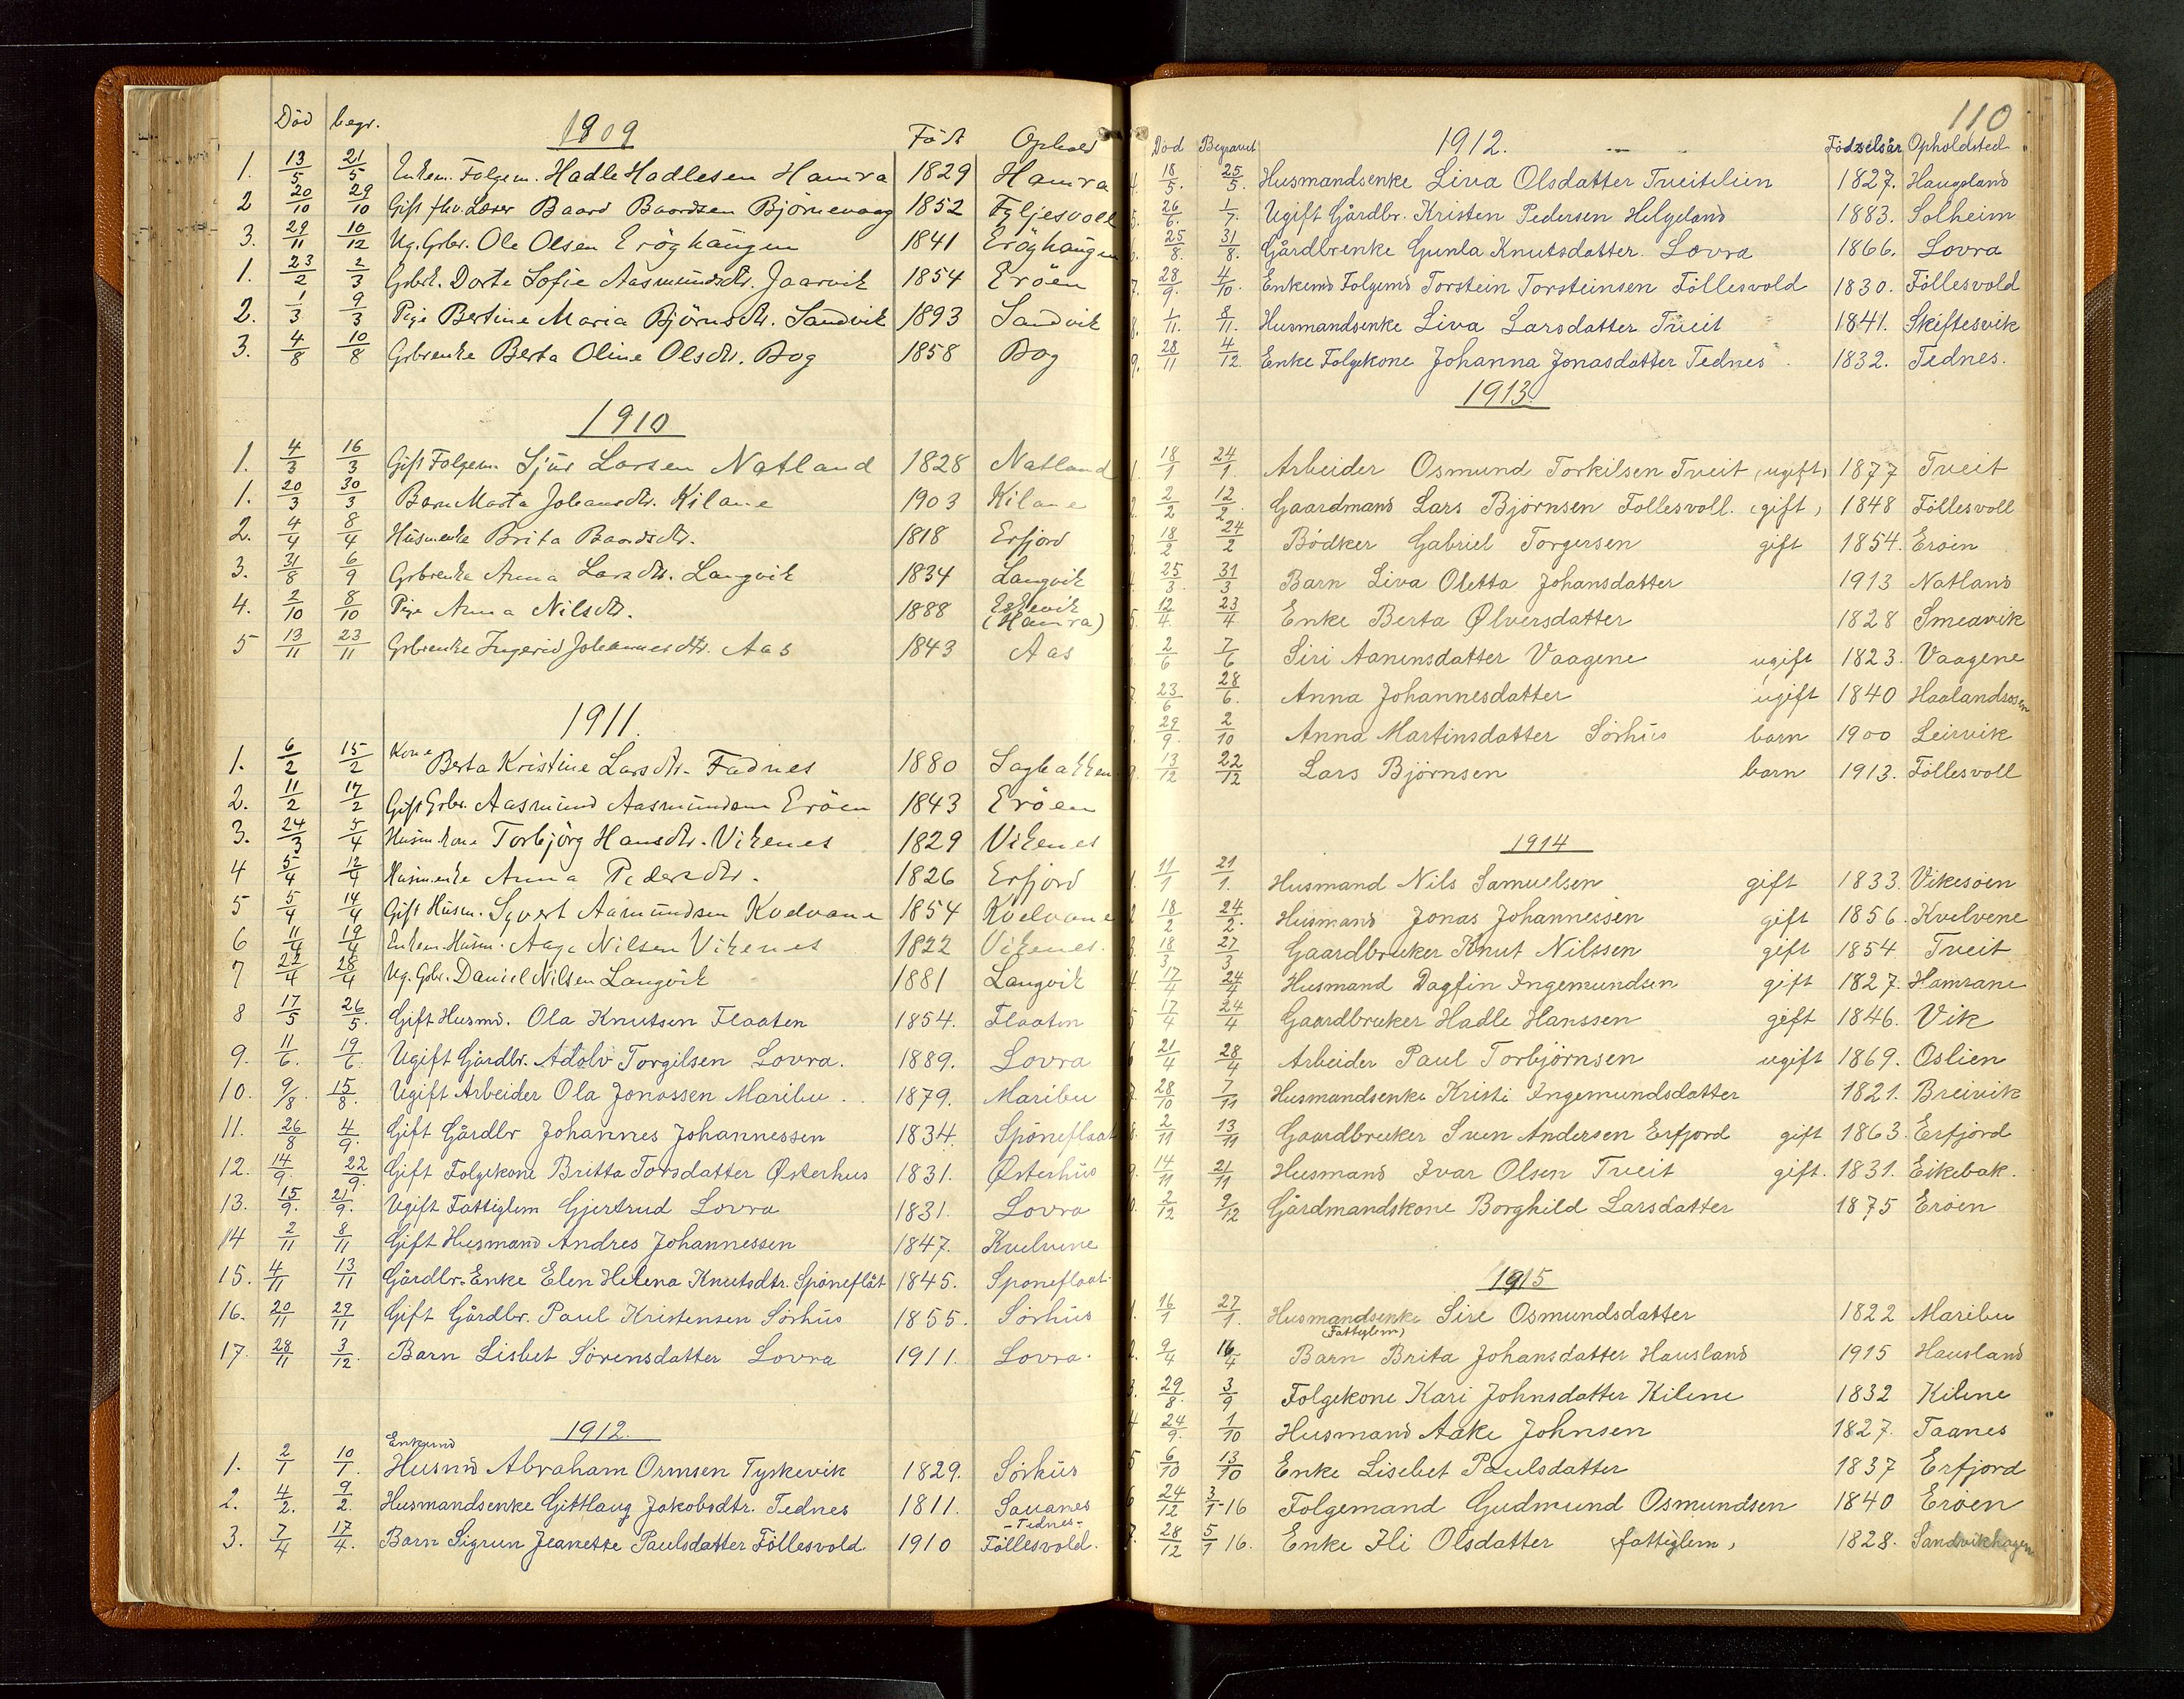 Död begr. 1909 Födt Ophold
1. 13/5 21/5 Enkem. Folgem. Hadle Hadlesen Hamra 1829 Hamra
2 20/10 29/10 Gift fhv. Lærer Baard Baardsen Björnevaag 1852 Fyljesvoll
3. 29/11 10/12 Ug. Grbr. Ole Olsen Eröyhaugen 1841 Eröyhaugen
1. 23/2 2/3 Grbrk. Dorte Sofie Aasmundsdtr. Jaarvik 1854 Eröen
2. 1/3 9/3 Pige Bertine Maria Björnsdtr. Sandvik 1893 Sandvik
3. 4/8 10/8 Grbrenke Berta Oline Olsdtr. Bog 1858 Bog
1910
1. 4/3 16/3 Gift Folgem. Sjur Larsen Natland 1828 Natland
1. 20/3 30/3 Barn Marta Johansdtr. Kilane 1903 Kilane
2. 4/4 8/4 Husmenke Brita Baardsdtr. 1818 Erfjord
3. 31/8 6/9 Grbrenke Anna Larsdtr. Langvik 1834 Langvik
4. 2/10 8/10 Pige Anna Nilsdtr. 1888 Eskevik
(Hamra)
5 13/11 23/11 Grbrenke Ingerid Johannesdtr. Aas 1843 Aas
1911.
1. 6/2 15/2 Kone Berta Kristine Larsdtr. Fadnes 1880 Sagbakken
2. 11/2 17/2 Gift Grbr. Aasmund Aasmundsen Eröen 1843 Eröen
3. 24/3 5/4 Husm.kone Torbjörg Hansdtr. Vikenes 1829 Vikenes
4 5/4 12/4 Husmenke Anna Pedersdtr. 1826 Erfjord
5 5/4 14/4 Gift Husm. Syvert Aamundsen Kvelvane 1854 Kvelvane
6 11/4 19/4 Enkem. Husm. Aage Nilsen Vikenes 1822 Vikenes.
7 22/4 28/4 Ug. Gbr. Daniel Nilsen Langvik 1881 Langvik
8 17/5 26/5. Gift Husmd. Ola Knutsen Flaaten 1854. Flaaten
9. 11/6. 19/6. Ugift Gårdbr. Adolv Torgilsen Lovra. 1889. Lovra
10. 9/8. 15/8. Ugift Arbeider Ola Jonassen Maribu. 1879. Maribu
11. 26/8 4/9. Gift Gårdbr Johannes Johannessen 1834. Sponeflaat
12. 14/9. 22/9. Gift Folgekone Britta Torsdatter Østerhus 1831. Østerhus
13. 15/9. 21/9. Ugift Fattiglem Gjertrud Lovra 1831. Lovra
14 2/11 8/11 Gift Husmand Andres Johannessen 1847. Kvelvene
15. 4/11 13/11 Gårdbr. Enke Elen Helena Knutsdtr. Sponeflåt 1845. Sponeflaat
16. 20/11 29/11 Gift Gårdbr. Paul Kristensen Sörhus 1855. Sörhus
17. 28/11 3/12. Barn Lisbet Sörensdatter Lovra 1911. Lovra.
1912.
Enkemd
1. 2/1 10/1. Husmd Abraham Ormsen Tyskevik 1829. Sörhus
2. 4/2. 9/2. Husmandsenke Gitlaug Jakobsdtr. Tednes 1811. Sauanes
-Tednes-
3. 7/4 17/4. Barn Sigrun Jeanette Paulsdatter Föllesvold 1910 Föllesvold.
110
Död Begravet 1912. Födselsår Opholdsted
4. 18/5. 25/5. Husmandsenke Liva Olsdatter Tveitelien 1827. Haugeland
5. 26/6. 1/7. Ugift Gårdbr. Kristen Pedersen Helgeland 1883. Solheim
6. 25/8. 31/8. Gårdbrenke Gunla Knutsdatter. Lovra 1866. Lovra
7. 28/9. 4/10. Enkemd Folgemd Torstein Torsteinsen Föllesvold 1830. Föllesvold
8. 1/11. 8/11. Husmandsenke Liva Larsdatter Tveit 1841. Skiftesvik
9. 28/11 4/12. Enke Folgekone Johanna Jonasdatter Tednes. 1832. Tednes.
1913.
1. 18/1 24/1. Arbeider Osmund Torkilsen Tveit (ugift) 1877 Tveit
2. 2/2 12/2. Gaardmand Lars Björnsen Follesvoll. (gift) 1848 Föllesvoll
3. 18/2 24/2 Bödker Gabriel Torgersen gift 1854. Eröen
4. 25/3. 31/3 Barn Liva Oletta Johansdatter 1913 Natland
5. 12/4. 23/4. Enke Berta Ølversdatter 1828 Smeavik
6. 2/6 7/6 Siri Aanensdatter Vaagene ugift 1823. Vaagene
7. 23/6 28/6. Anna Johannesdatter ugift 1840 Haalandsosen
8. 29/9. 2/10 Anna Martinsdatter Sörhus barn 1900 Leirvik
9. 13/12 22/12 Lars Björnsen barn 1913. Föllesvoll
1914
1. 11/1 21/1. Husmand Nils Samuelsen gift 1833. Vikesöen
2 18/2 24/2. Husmand Jonas Johannessen gift 1856. Kvelvene
3. 18/3. 27/3 Gaardbruker Knut Nilssen gift 1854 Tveit
4. 17/4 24/4 Husmand Dagfin Ingemundsen gift 1827. Hamrane
5 17/4 24/4 Gaardbruker Hadle Hanssen gift 1846. Vik
6 21/4 28/4 Arbeider Paul Torbjörnsen ugift 1869. Oslien
7. 28/10 7/11 Husmandsenke Kristi Ingemundsdatter 1821. Breivik
8. 2/11 13/11 Gaardbruker Sven Andersen Erfjord gift 1863. Erfjord
9. 14/11 21/11 Husmand Ivar Olsen Tveit gift. 1831. Eikebak.
10. 2/12 9/12 Gårdmandskone Borghild Larsdatter 1875 Eröen
1915
1. 16/1 27/1. Husmandsenke Sire Osmundsdatter 1822 Maribu
(Fattiglem)
2. 9/4 16/4 Barn Brita Johansdatter Hausland 1915 Hausland
3. 29/8. 3/9 Folgekone Kari Johnsdatter Kilene 1832 Kilene
4 24/9. 1/10 Husmand Aake Johnsen 1827. Taanes
5 6/10 13/10 Enke Lisebet Paulsdatter 1837 Erfjord
6 24/12 3/1-16 Folgemand Gudmund Osmundsen 1840 Eröen
7. 28/12 5/1 16. Enke Ili Olsdatter (fattiglem) 1828. Sandvikhagen